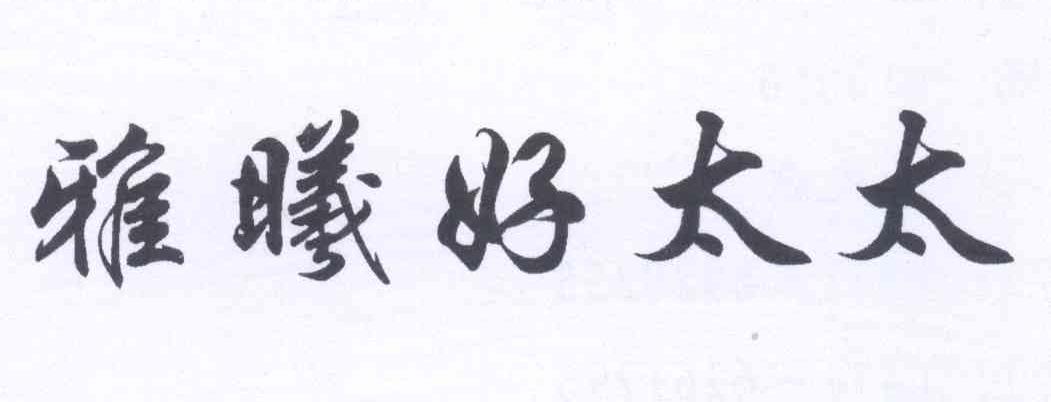 雅曦好太太